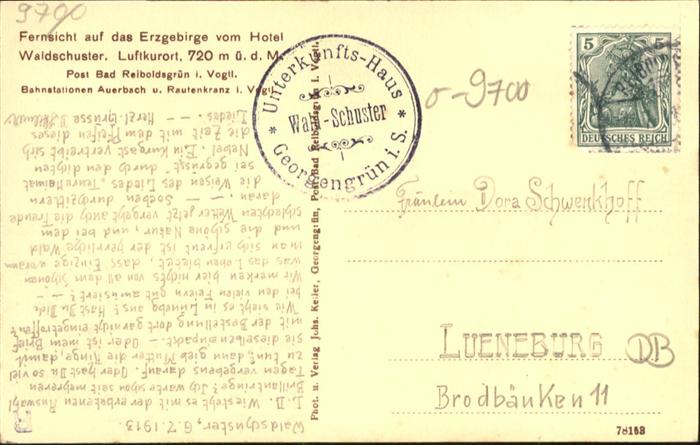 9790
Fernsicht auf das Erzgebirge vom Hotel
Waldschuster. Luftkurort, 720 m ü. d. M.
Post Bad Reiboldsgrün i. Vogtl.
Bahnstationen Auerbach u. Rautenkranz i. Vogtl.
* Unterkunfts-Haus *
Wald-Schuster
Georgengrün i. S.
σ-9700
5 5
DEUTSCHES REICH
Phot. u. Verlag Johs. Keller, Georgengrün, Post Bad Reiboldsgrün i. Vogtl.
Fräulein Dora Schwenkhoff
LUENEBURG DB
Brodbänken 11
78163
Waldschuster, 6.7.1913.
L. D. Wie steht es mit der erbetenen Auswahl
Brillantringe? Ich warte schon seit mehreren
Tagen vergebens darauf. Oder hast Du so viel
zu tun?, dann gieb Mutter die Ringe, damit
Sie dieselben einpackt. – Oder ist mein Brief
mit der Bestellung dort garnicht eingetroffen?
Wie sieht es in Lünebg aus? Hast Du Dich
bei den vielen Feiern gut amüsiert? – –
Wir merken hier nichts von all dem Schönen
was das Leben bietet, das Einzige woran
man sich erfreut ist der herrliche Wald
und die schöne Natur, und bei dem
schlechten Wetter jetzt vergeht auch die Freude
daran. – – Soeben durchzittern
die Weisen des Liedes „Teure Heimat
sei gegrüsst" durch den dichten
Nebel. Ein Kurgast vertreibt sich
die Zeit mit dem Pfeifen dieses
Liedes. – – – Herzl. Grüsse